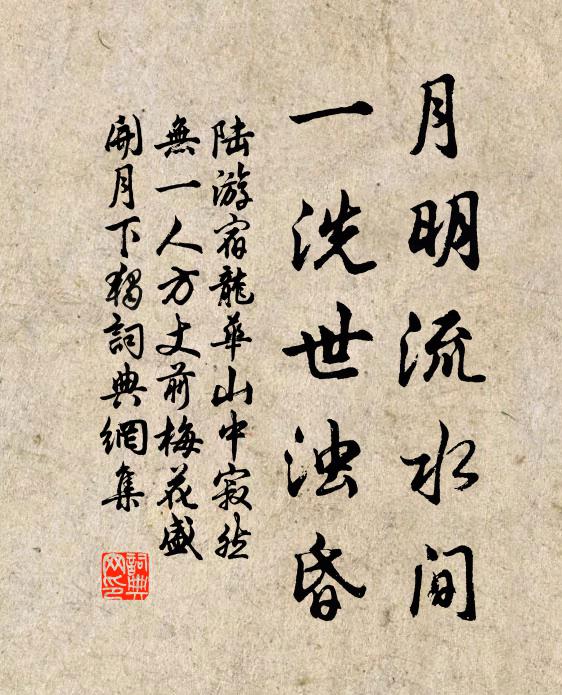 月明流水间
一洗世浊昏
陆游宿龍華山中寂然
無一人方丈前梅花盛
開月下獨詞典網集
詞典網印